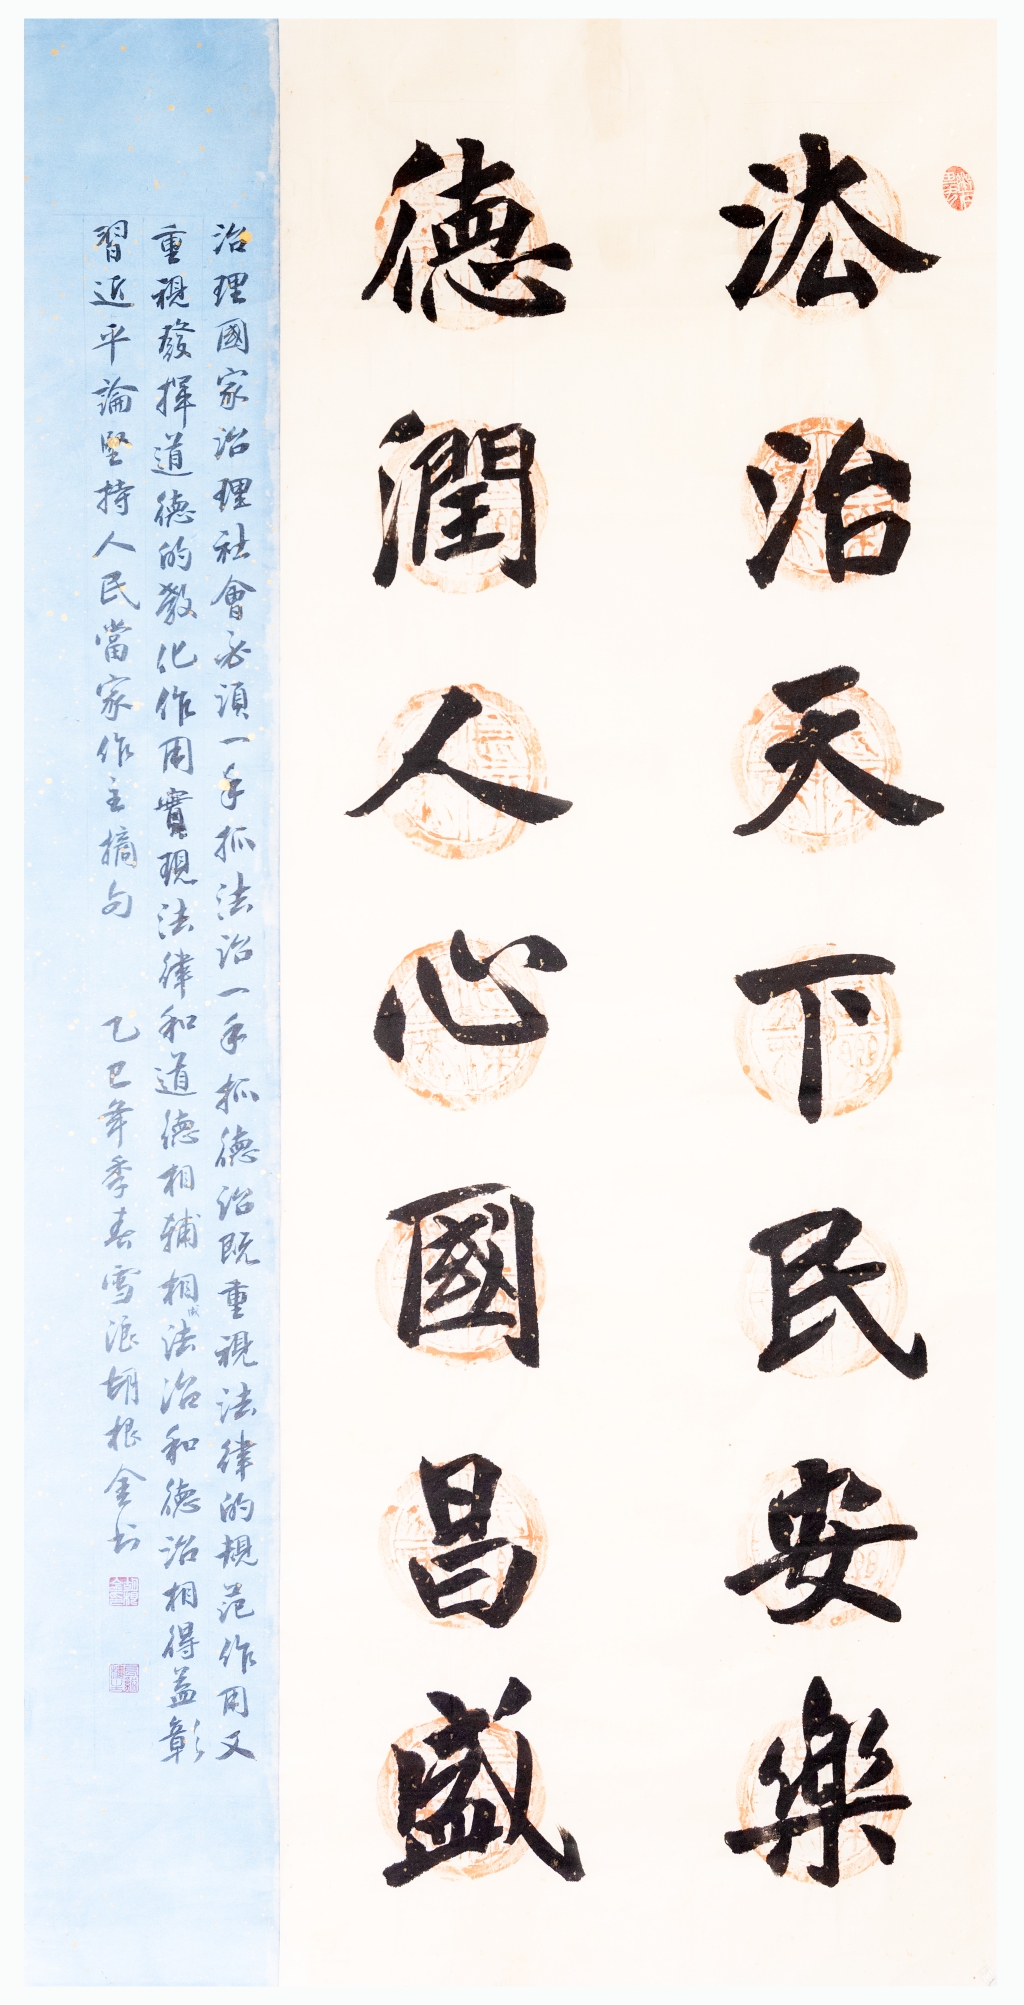 法治天下民安樂
德潤人心國昌盛
治理國家治理社會必須一手抓法治一手抓德治既重視法律的規范作用又
重視發揮道德的教化作用實現法律和道德相輔相成法治和德治相得益彰
習近平論堅持人民當家作主摘句 乙巳年季春雪浪胡根金书